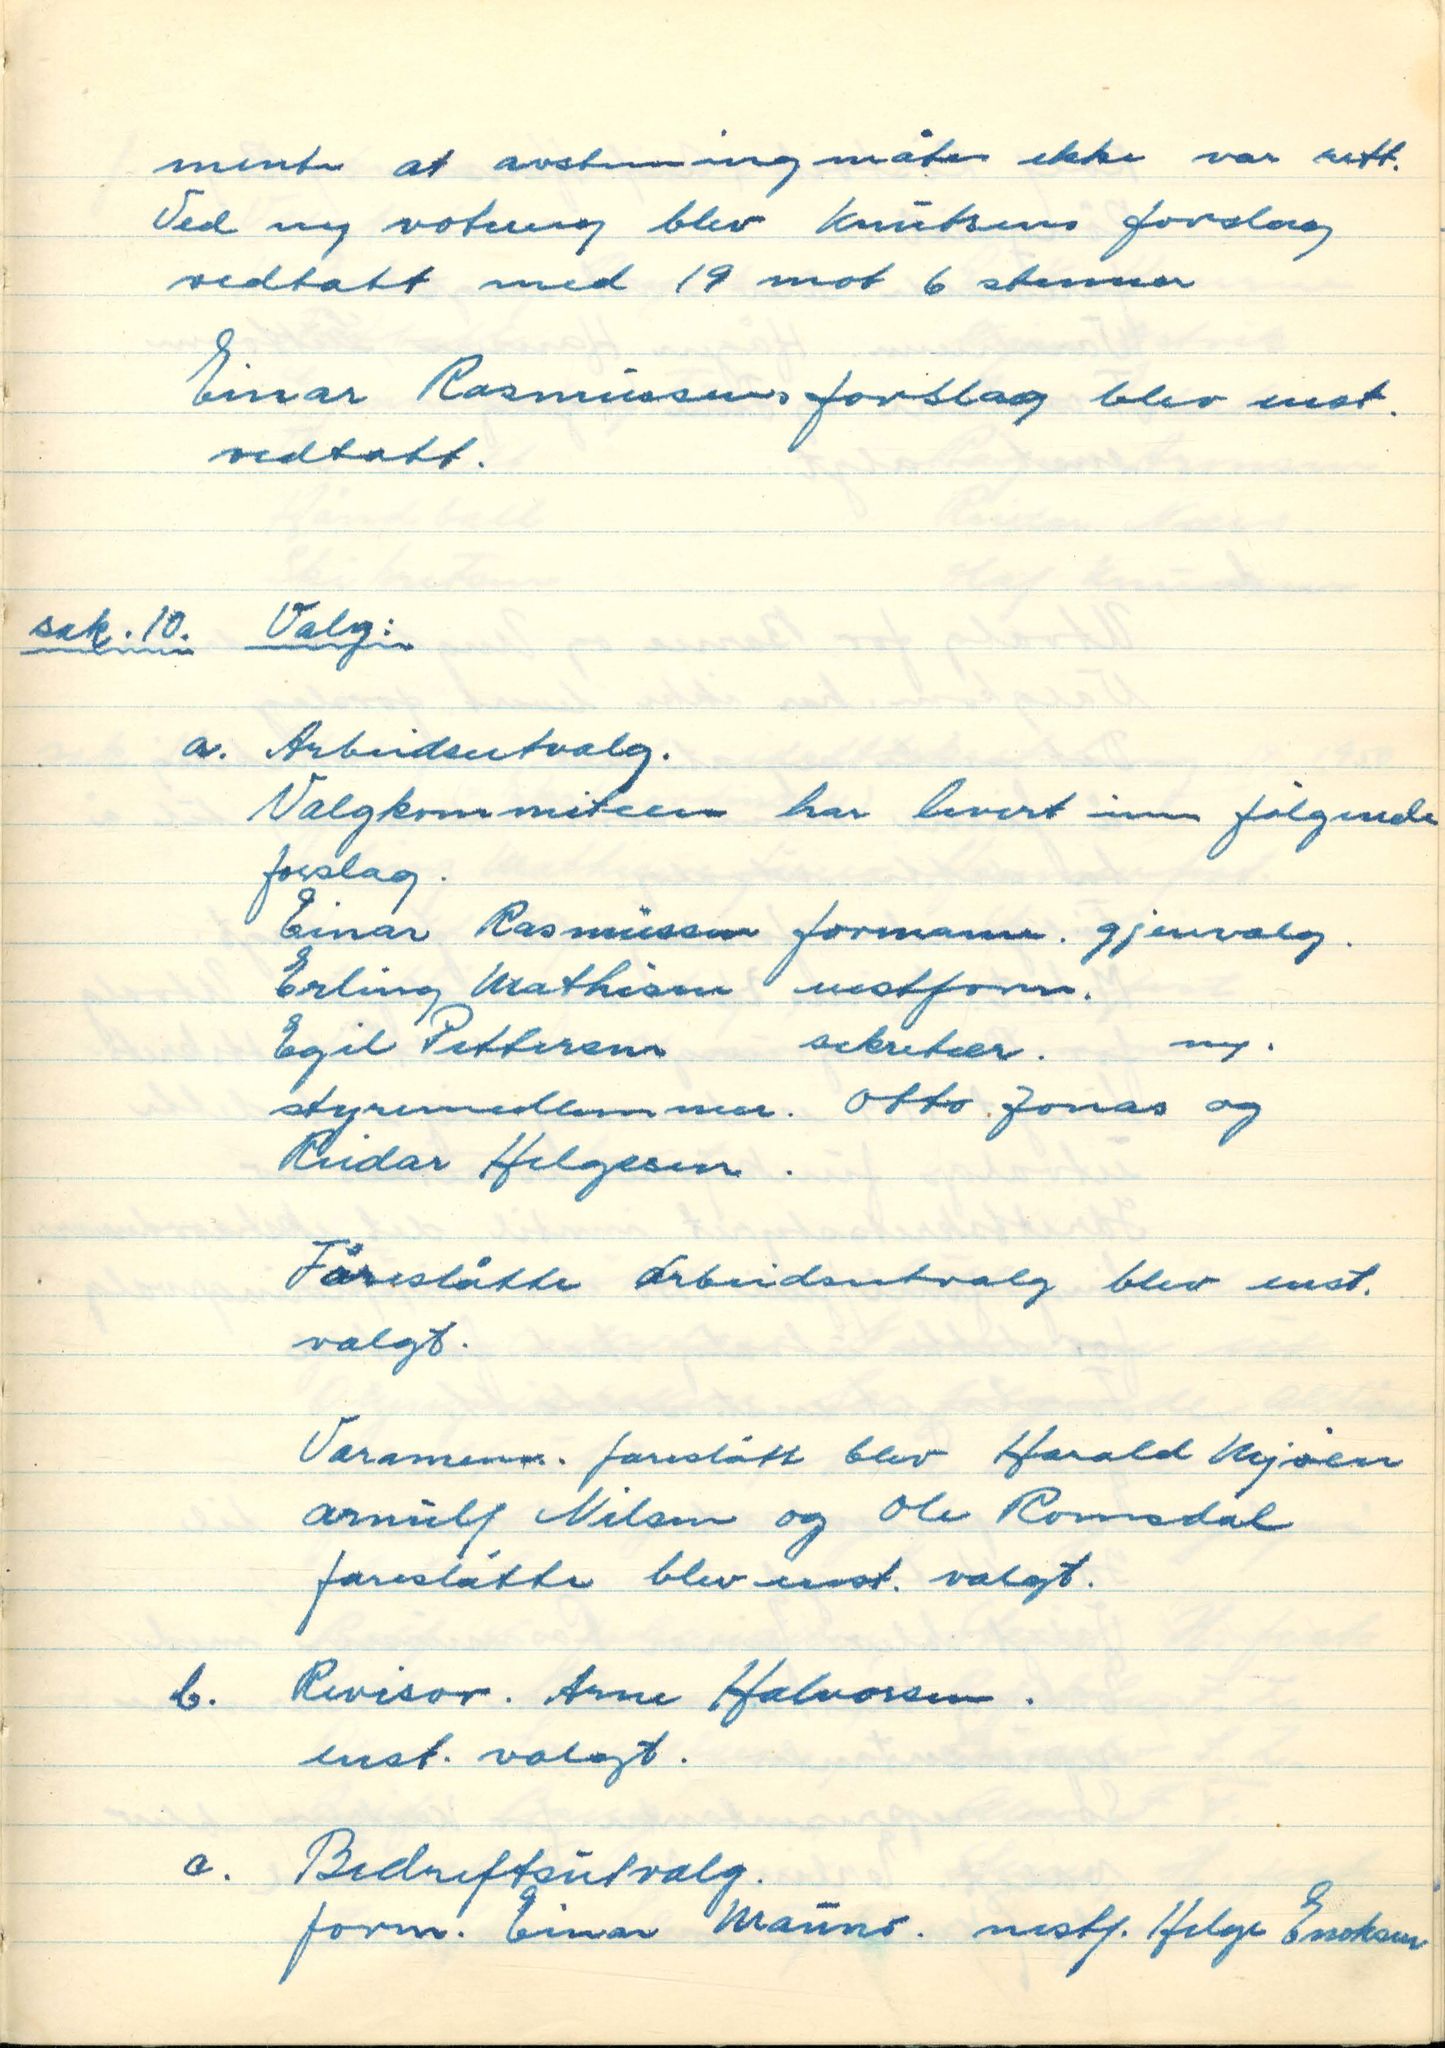 mente at avstemingmåten ikke var rett.
Ved ny voteing blev Knutsens forslag
vedtatt med 19 mot 6 stemmer
Einar Rasmussens forslag blev enst.
vedtatt.
sak. 10. Valg:
a. Arbeidsutvalg.
Valgkommiteen har levert inn følgende
forslag.
Einar Rasmussen formann. gjenvalg.
Erling Mathisen nestform.
Egil Pettersen sekretær. ny.
styremedlemmer. Otto Jonas og
Reidar Helgesen.
Føreslåtte arbeidsutvalg blev enst.
valgt.
Varamenn. føreslått blev Harald
Arnulf Nilsen og Ole Romsdal
føreslåtte blev enst. valgt.
b. Revisor. Arne Halvorsen.
enst. valgt.
c. Bedriftsutvalg.
form. Einar nestf. Helge Enoksen